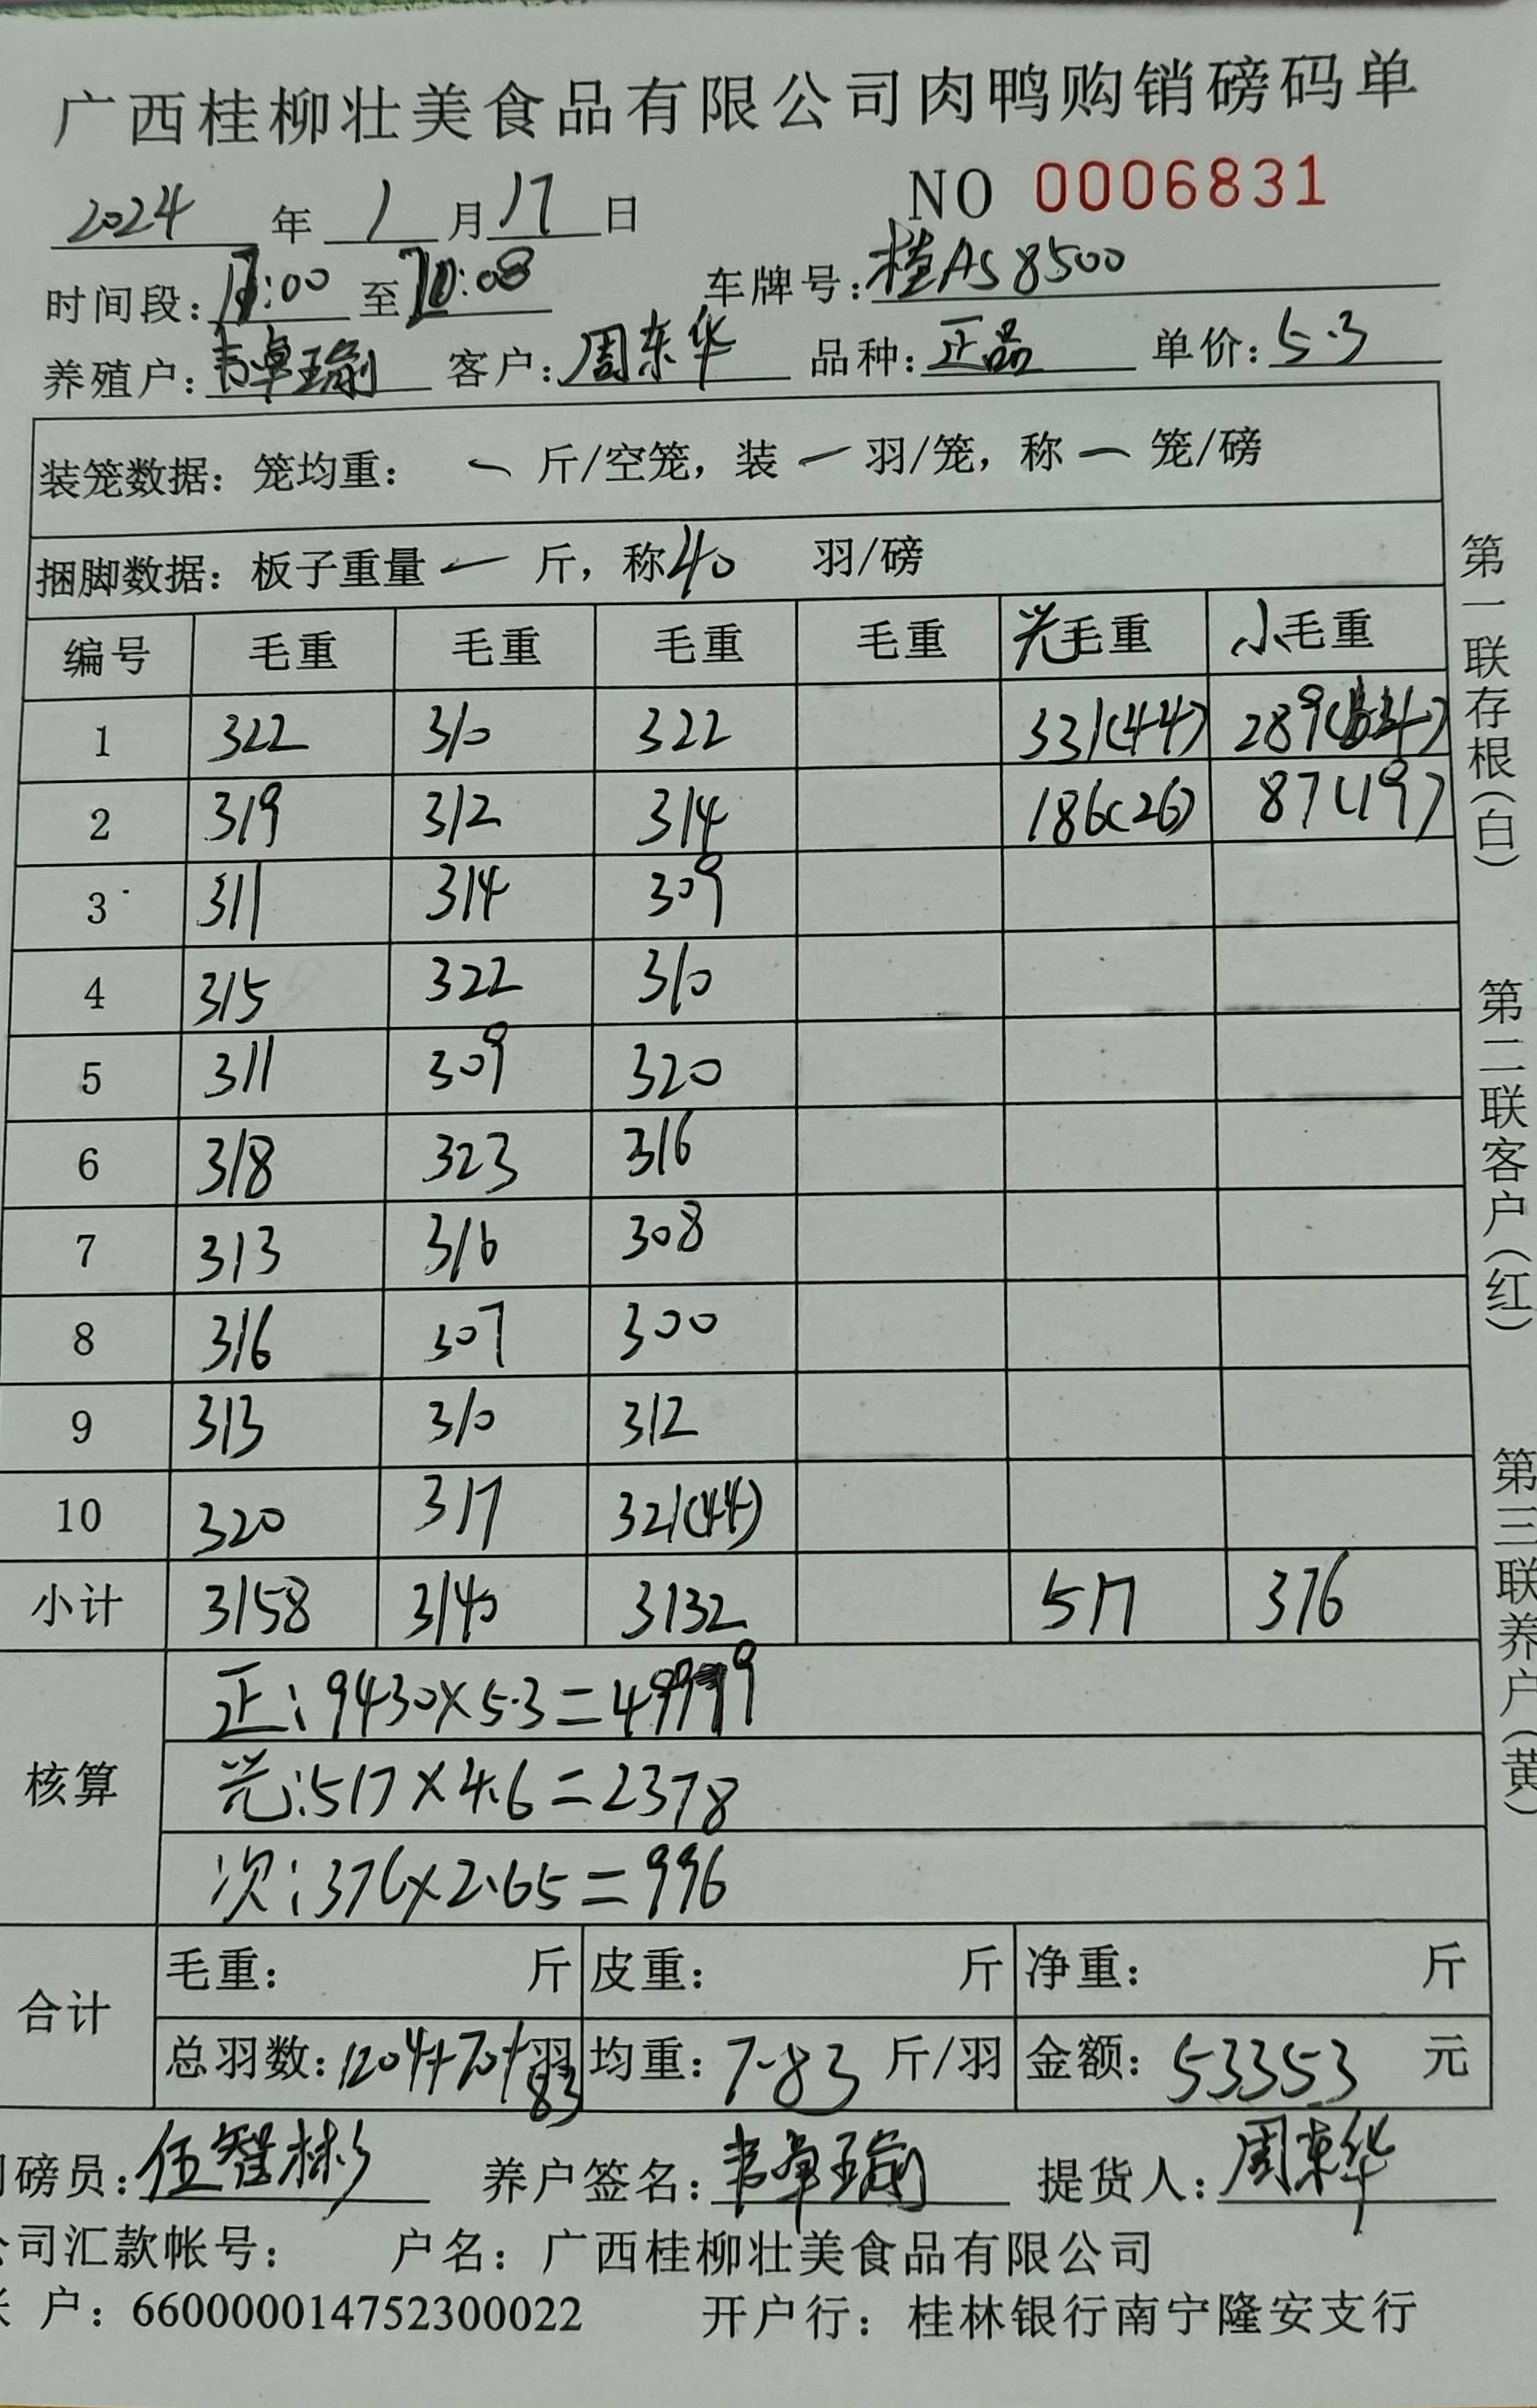 广西桂柳壮美食品有限公司肉鸭购销磅码单
NO 0006831
2024 年 1 月 17 日
时间段: :00 至 :08 车牌号: 桂AS8500
养殖户: 韦卓瑜 客户: 周东华 品种: 正品 单价: 5.3
装笼数据: 笼均重: 一 斤/空笼, 装 一 羽/笼, 称 一 笼/磅
捆脚数据: 板子重量 一 斤, 称 40 羽/磅
编号 毛重 毛重 毛重 毛重 光毛重 小毛重
1 322 310 322 331(44) 289(64)
2 319 312 314 186(26) 87(19)
3 311 314 309
4 315 322 310
5 311 309 320
6 318 323 316
7 313 316 308
8 316 307 300
9 313 310 312
10 320 317 321(44)
小计 3158 3140 3132 517 376
核算
正:9430×5.3=49979
光:517×4.6=2378
次:376×2.65=996
合计
毛重: 斤 皮重: 斤 净重: 斤
总羽数: 1204+70+83 羽 均重: 7.83 斤/羽 金额: 53353 元
司磅员: 伍智彬 养户签名: 韦卓瑜 提货人: 周东华
公司汇款帐号: 户名: 广西桂柳壮美食品有限公司
户: 660000014752300022 开户行: 桂林银行南宁隆安支行
第一联存根(白)
第二联客户(红)
第三联养户(黄)